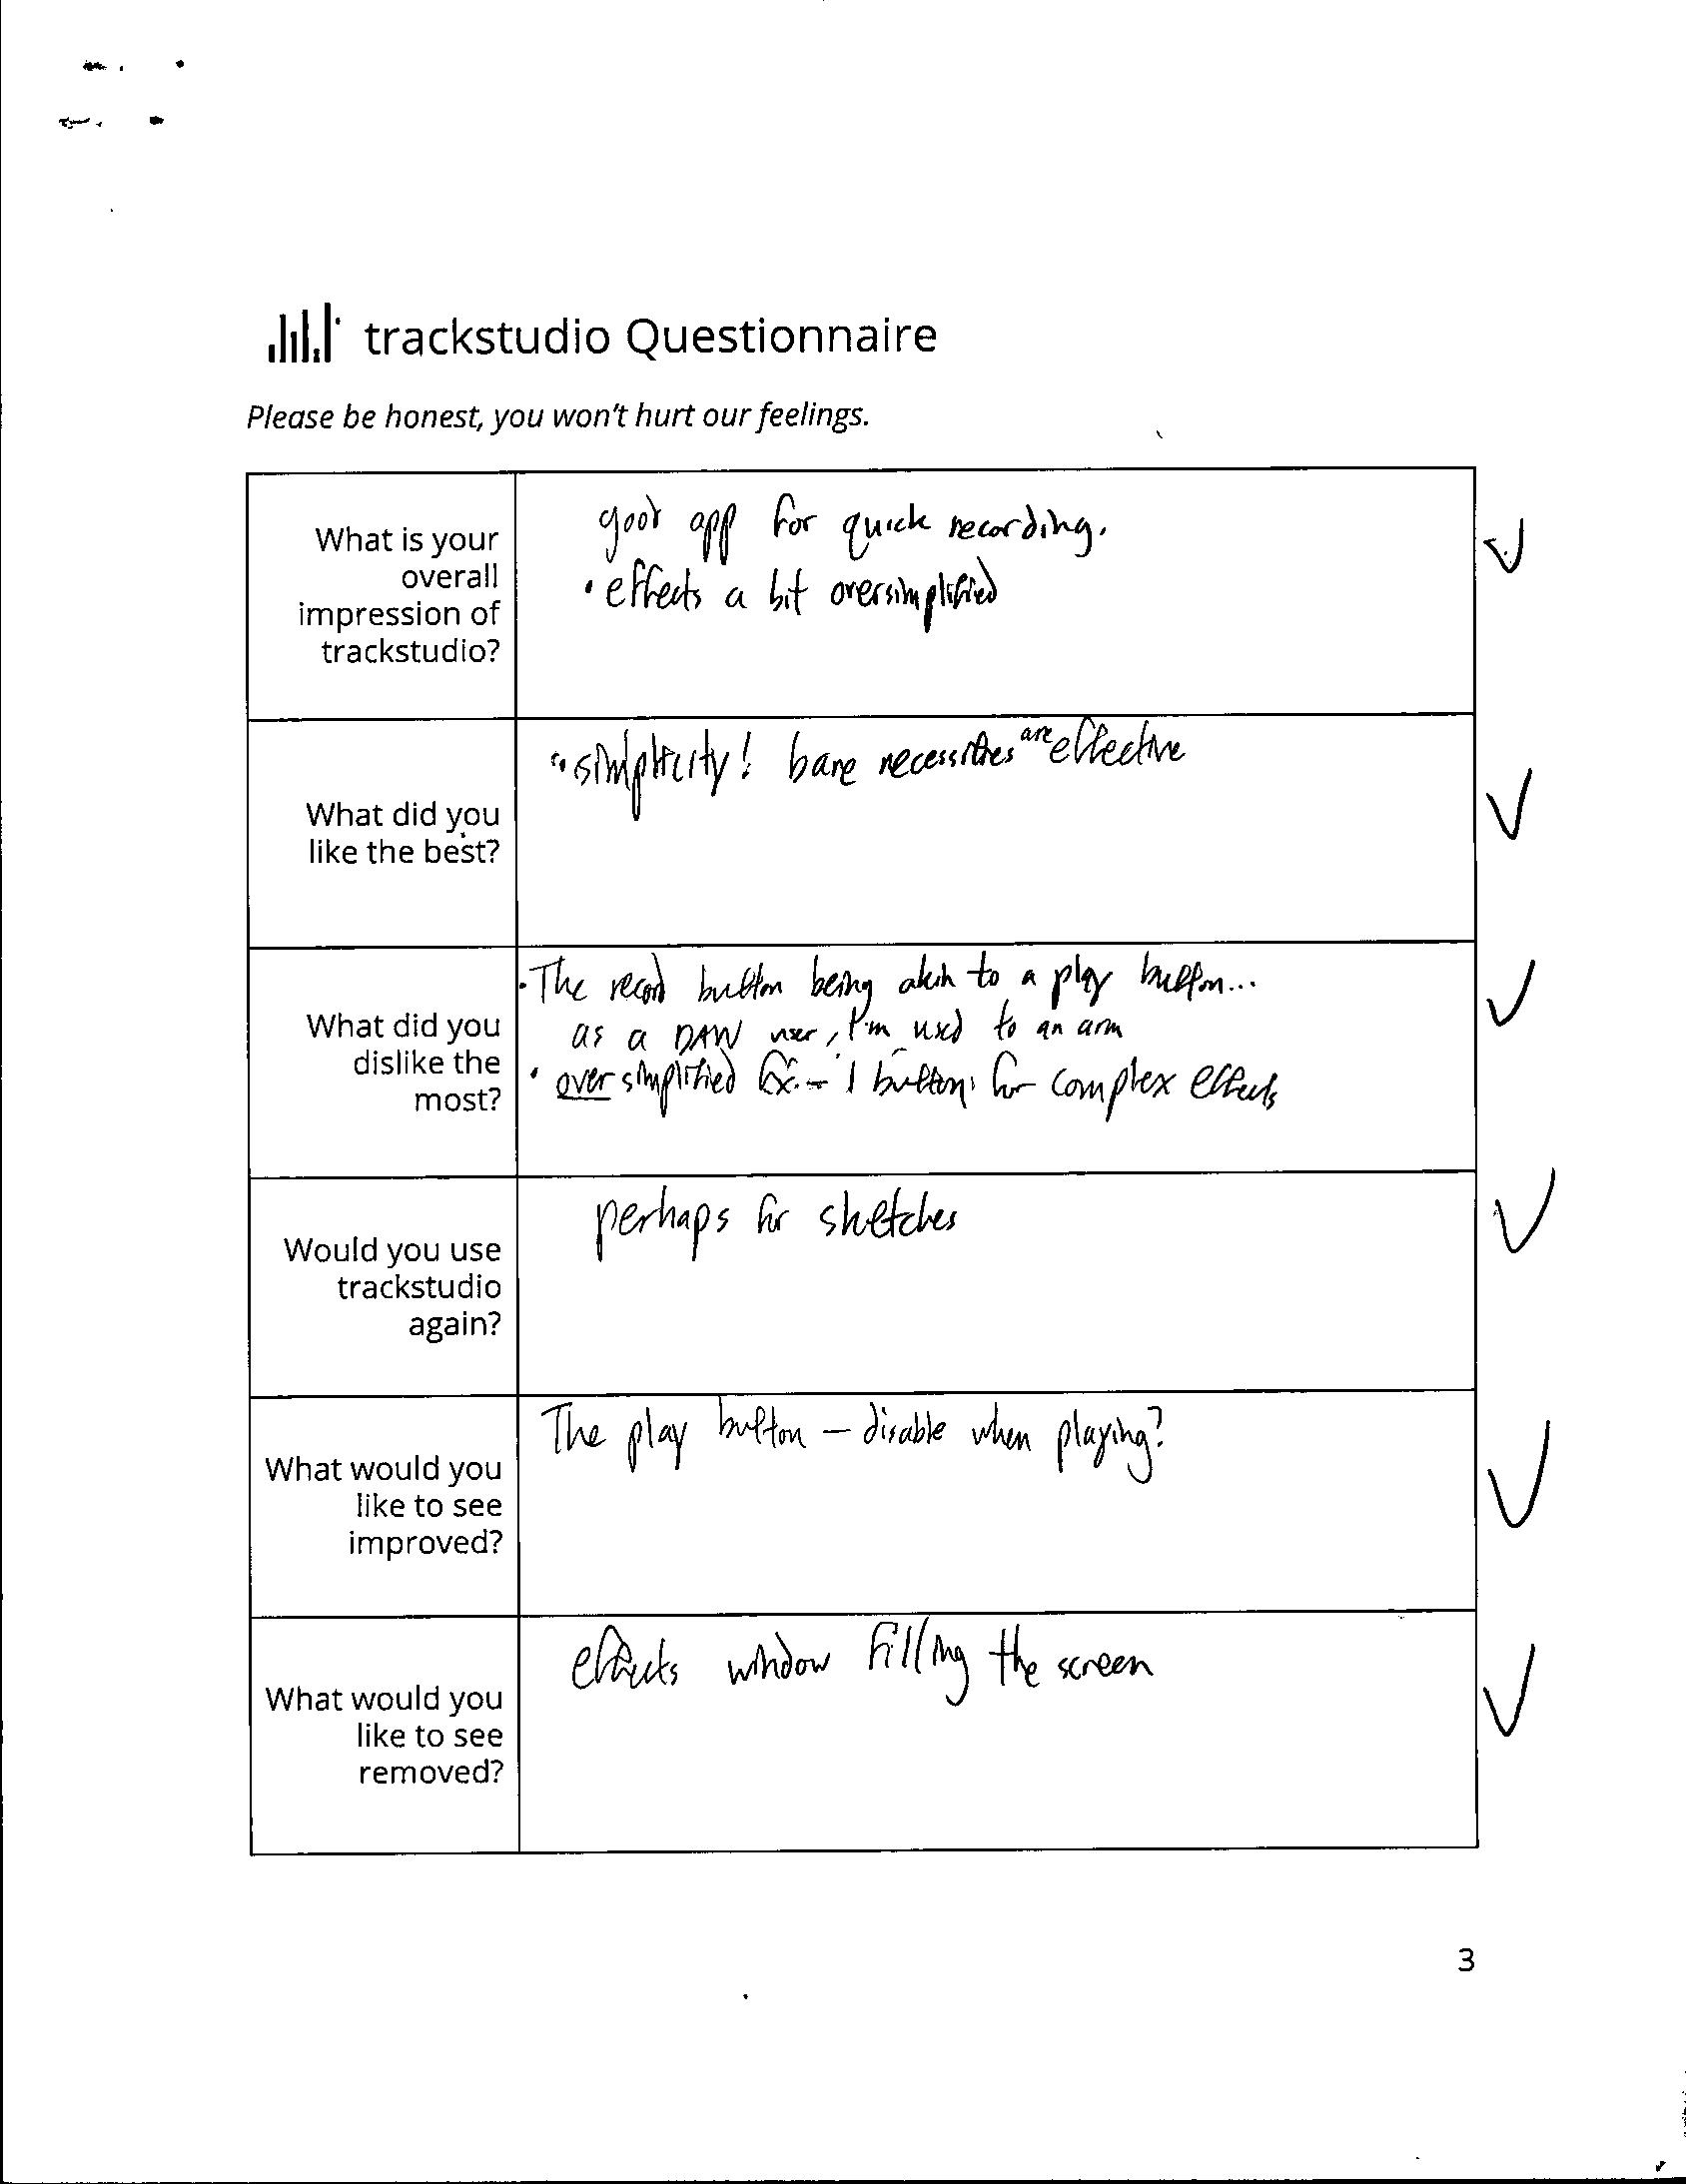 trackstudio Questionnaire
Please be honest, you won't hurt our feelings.
What is your
overall
impression of
trackstudio?
good app for quick recording.
• effects a bit oversimplified
What did you
like the best?
simplicity! bare necessities are effective
What did you
dislike the
most?
• The record button being akin to a play button...
as a DAW user, I'm used to an arm
• over simplified fx. - 1 button for complex effects
Would you use
trackstudio
again?
perhaps for sketches
What would you
like to see
improved?
The play button – disable when playing?
What would you
like to see
removed?
effects window filling the screen
3